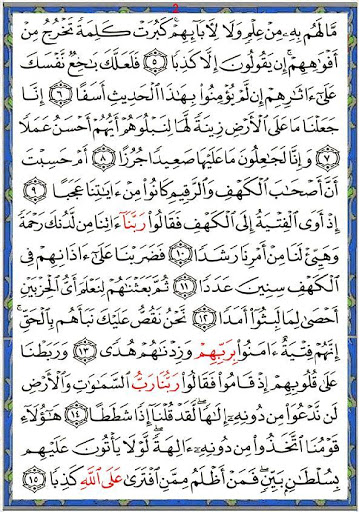 2
مَّا لَهُم بِهِۦ مِنْ عِلْمٍ وَلَا لِأَبَآئِهِمْ كَبُرَتْ كَلِمَةً تَخْرُجُ مِنْ
أَفْوَٰهِهِمْ إِن يَقُولُونَ إِلَّا كَذِبًا ٥ فَلَعَلَّكَ بَٰخِعٌ نَّفْسَكَ
عَلَىٰٓ ءَاثَٰرِهِمْ إِن لَّمْ يُؤْمِنُوا۟ بِهَٰذَا ٱلْحَدِيثِ أَسَفًا ٦ إِنَّا
جَعَلْنَا مَا عَلَى ٱلْأَرْضِ زِينَةً لَّهَا لِنَبْلُوَهُمْ أَيُّهُمْ أَحْسَنُ عَمَلًا
٧ وَإِنَّا لَجَٰعِلُونَ مَا عَلَيْهَا صَعِيدًا جُرُزًا ٨ أَمْ حَسِبْتَ
أَنَّ أَصْحَٰبَ ٱلْكَهْفِ وَٱلرَّقِيمِ كَانُوا۟ مِنْ ءَايَٰتِنَا عَجَبًا ٩
إِذْ أَوَى ٱلْفِتْيَةُ إِلَى ٱلْكَهْفِ فَقَالُوا۟ رَبَّنَآ ءَاتِنَا مِن لَّدُنكَ رَحْمَةً
وَهَيِّئْ لَنَا مِنْ أَمْرِنَا رَشَدًا ١٠ فَضَرَبْنَا عَلَىٰٓ ءَاذَانِهِمْ فِى
ٱلْكَهْفِ سِنِينَ عَدَدًا ١١ ثُمَّ بَعَثْنَٰهُمْ لِنَعْلَمَ أَىُّ ٱلْحِزْبَيْنِ
أَحْصَىٰ لِمَا لَبِثُوٓا۟ أَمَدًا ١٢ نَّحْنُ نَقُصُّ عَلَيْكَ نَبَأَهُم بِٱلْحَقِّ
إِنَّهُمْ فِتْيَةٌ ءَامَنُوا۟ بِرَبِّهِمْ وَزِدْنَٰهُمْ هُدًى ١٣ وَرَبَطْنَا
عَلَىٰ قُلُوبِهِمْ إِذْ قَامُوا۟ فَقَالُوا۟ رَبُّنَا رَبُّ ٱلسَّمَٰوَٰتِ وَٱلْأَرْضِ
لَن نَّدْعُوَا۟ مِن دُونِهِۦٓ إِلَٰهًا لَّقَدْ قُلْنَآ إِذًا شَطَطًا ١٤ هَٰٓؤُلَآءِ
قَوْمُنَا ٱتَّخَذُوا۟ مِن دُونِهِۦٓ ءَالِهَةً لَّوْلَا يَأْتُونَ عَلَيْهِم
بِسُلْطَٰنٍۭ بَيِّنٍ فَمَنْ أَظْلَمُ مِمَّنِ ٱفْتَرَىٰ عَلَى ٱللَّهِ كَذِبًا ١٥